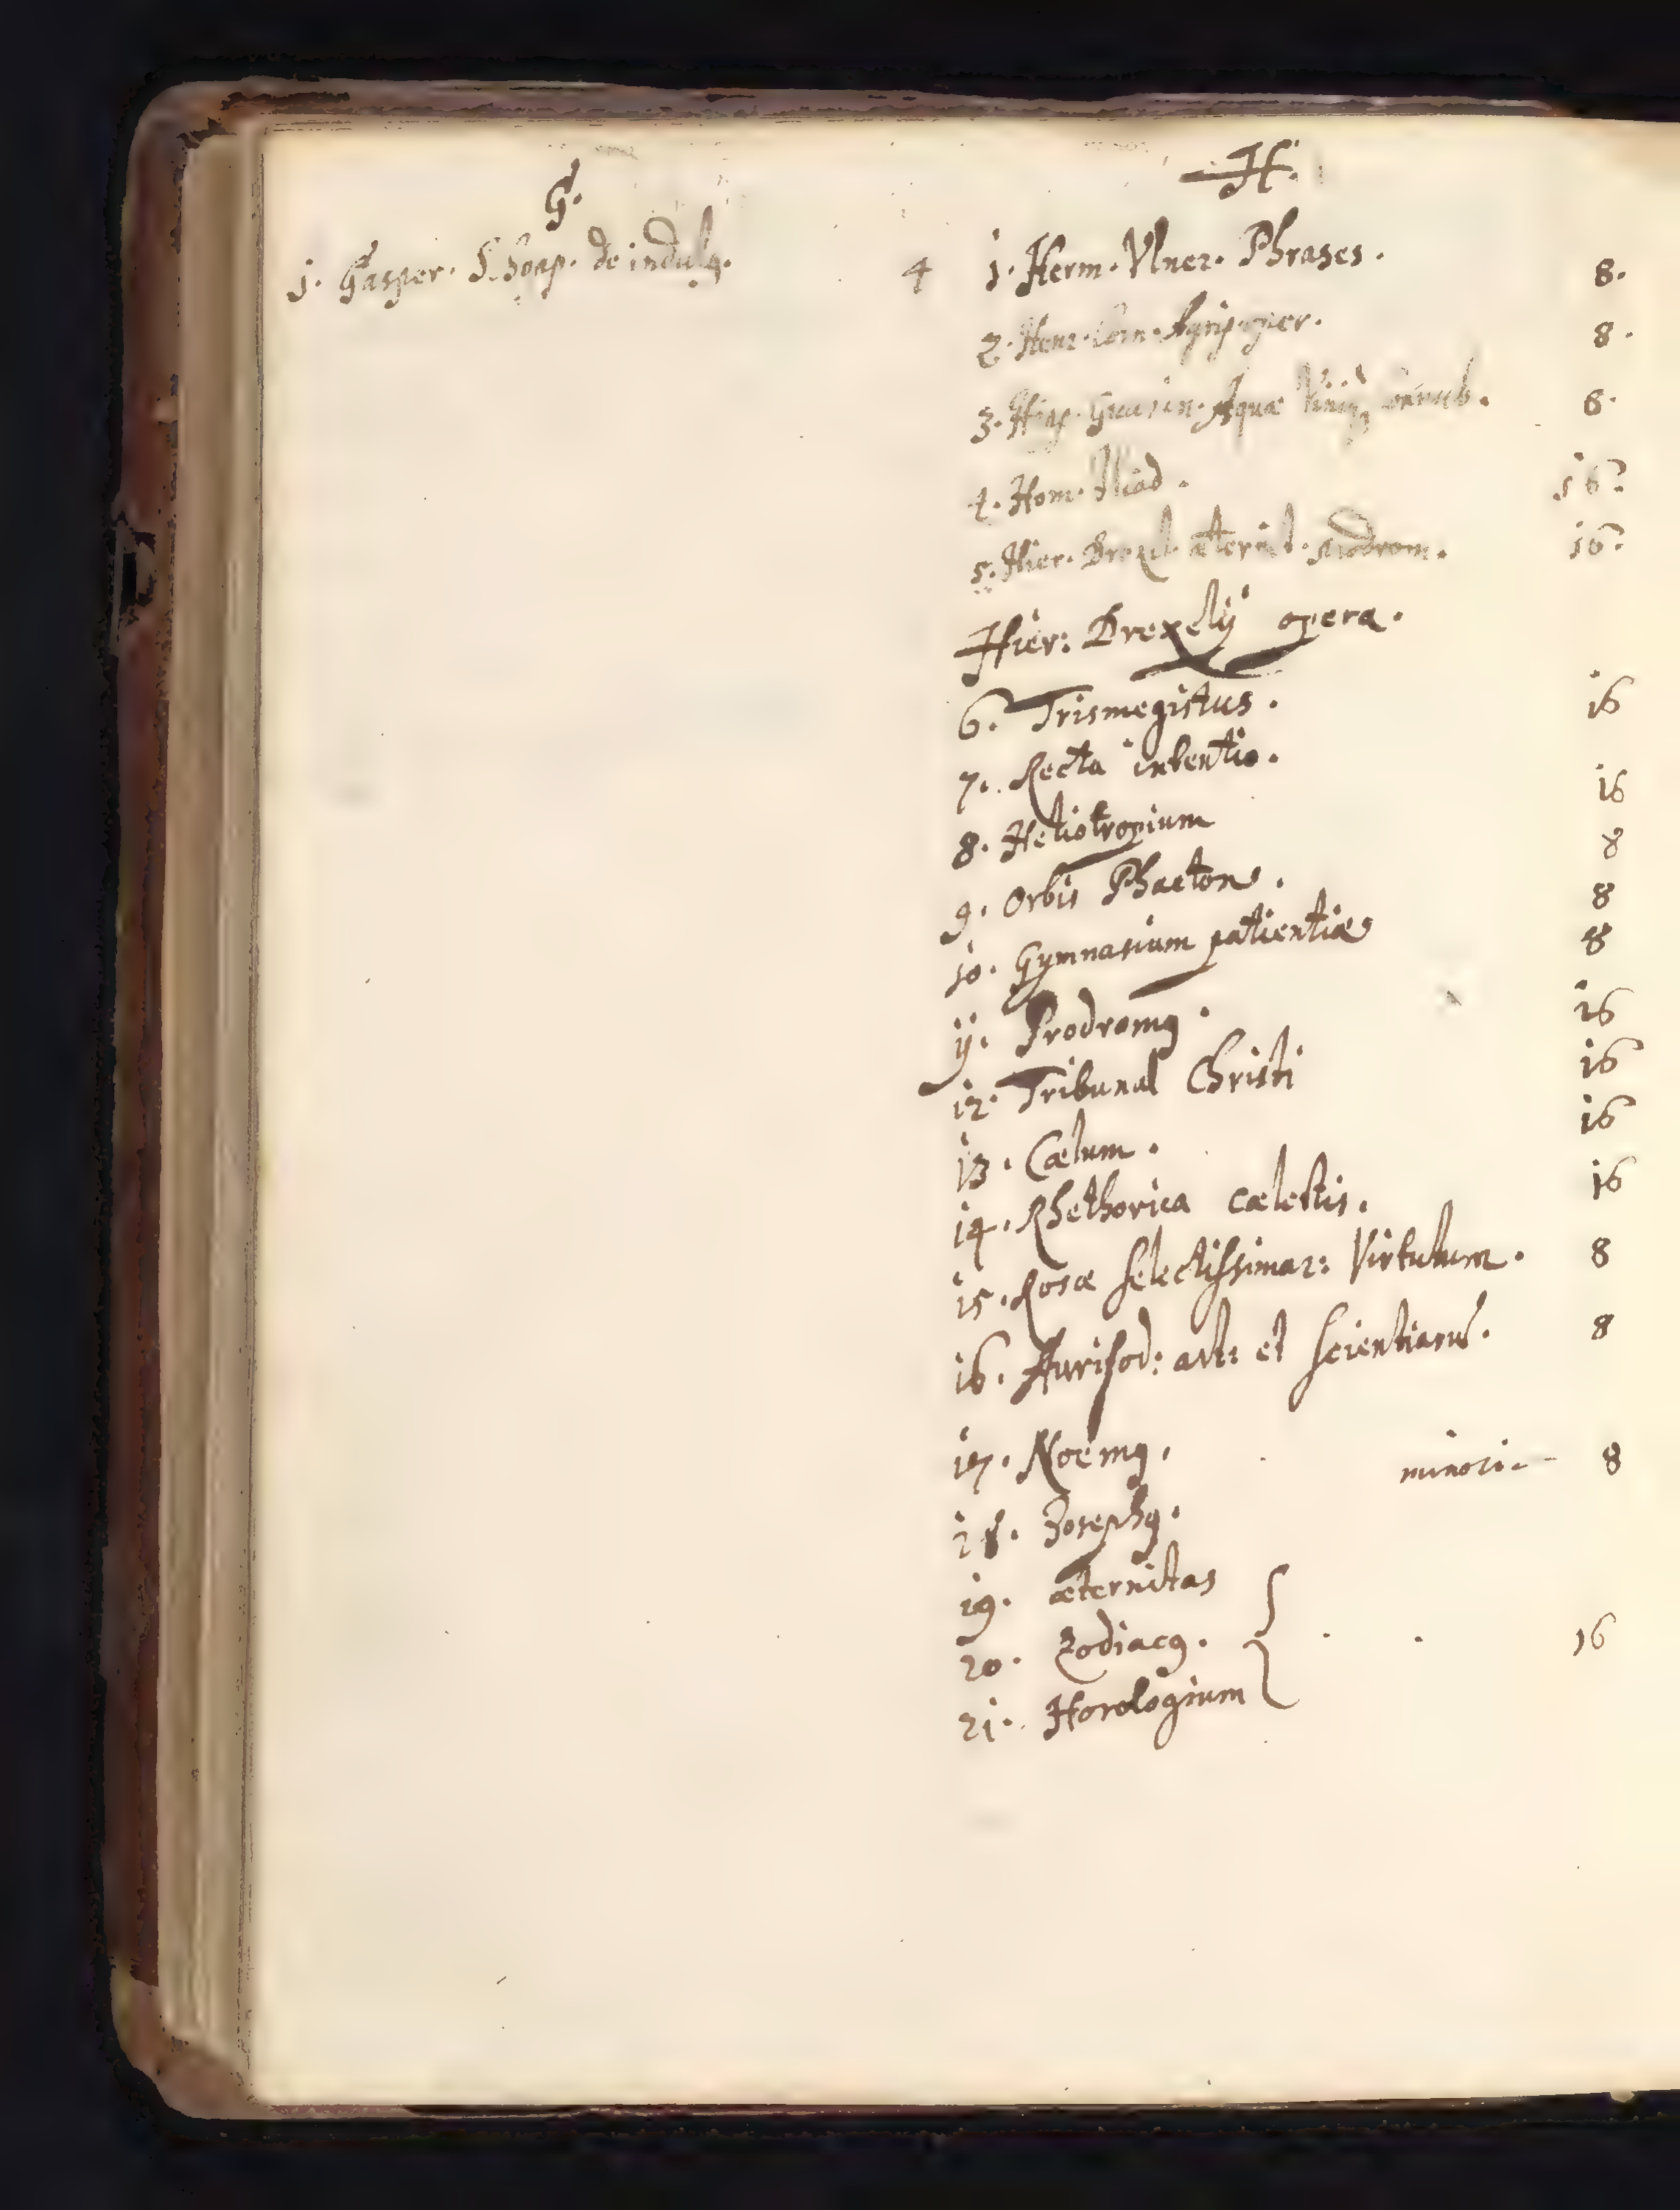 G.
1. Gasper. Schop. de indulg. 4
H.
1. Herm. Vlner. Phrases. 8.
2. Henr. Corn. Agrip. oper. 8.
3. Hip. Guarin. Aquæ Viniq 8.
4. Hom. Iliad. 16.
5. Hier. Drexel. æternit. prodrom. 16.
Hier: Drexelij opera.
6. Trismegistus. 16
7. Recta intentio. 16
8. Heliotropium 8
9. Orbis Phaeton. 8
10. Gymnasium patientiæ 8
11. Prodromꝯ. 16
12. Tribunal Christi 16
13. Cælum. 16
14. Rhethorica cælestis. 16
15. Rosæ selectissimar: Virtutum. 8
16. Aurifod: art: et scientiarū. 8
17. Noëmꝯ. minori - 8
18. Josephꝯ.
19. æternitas
20. Zodiacꝯ. 16
21. Horologium